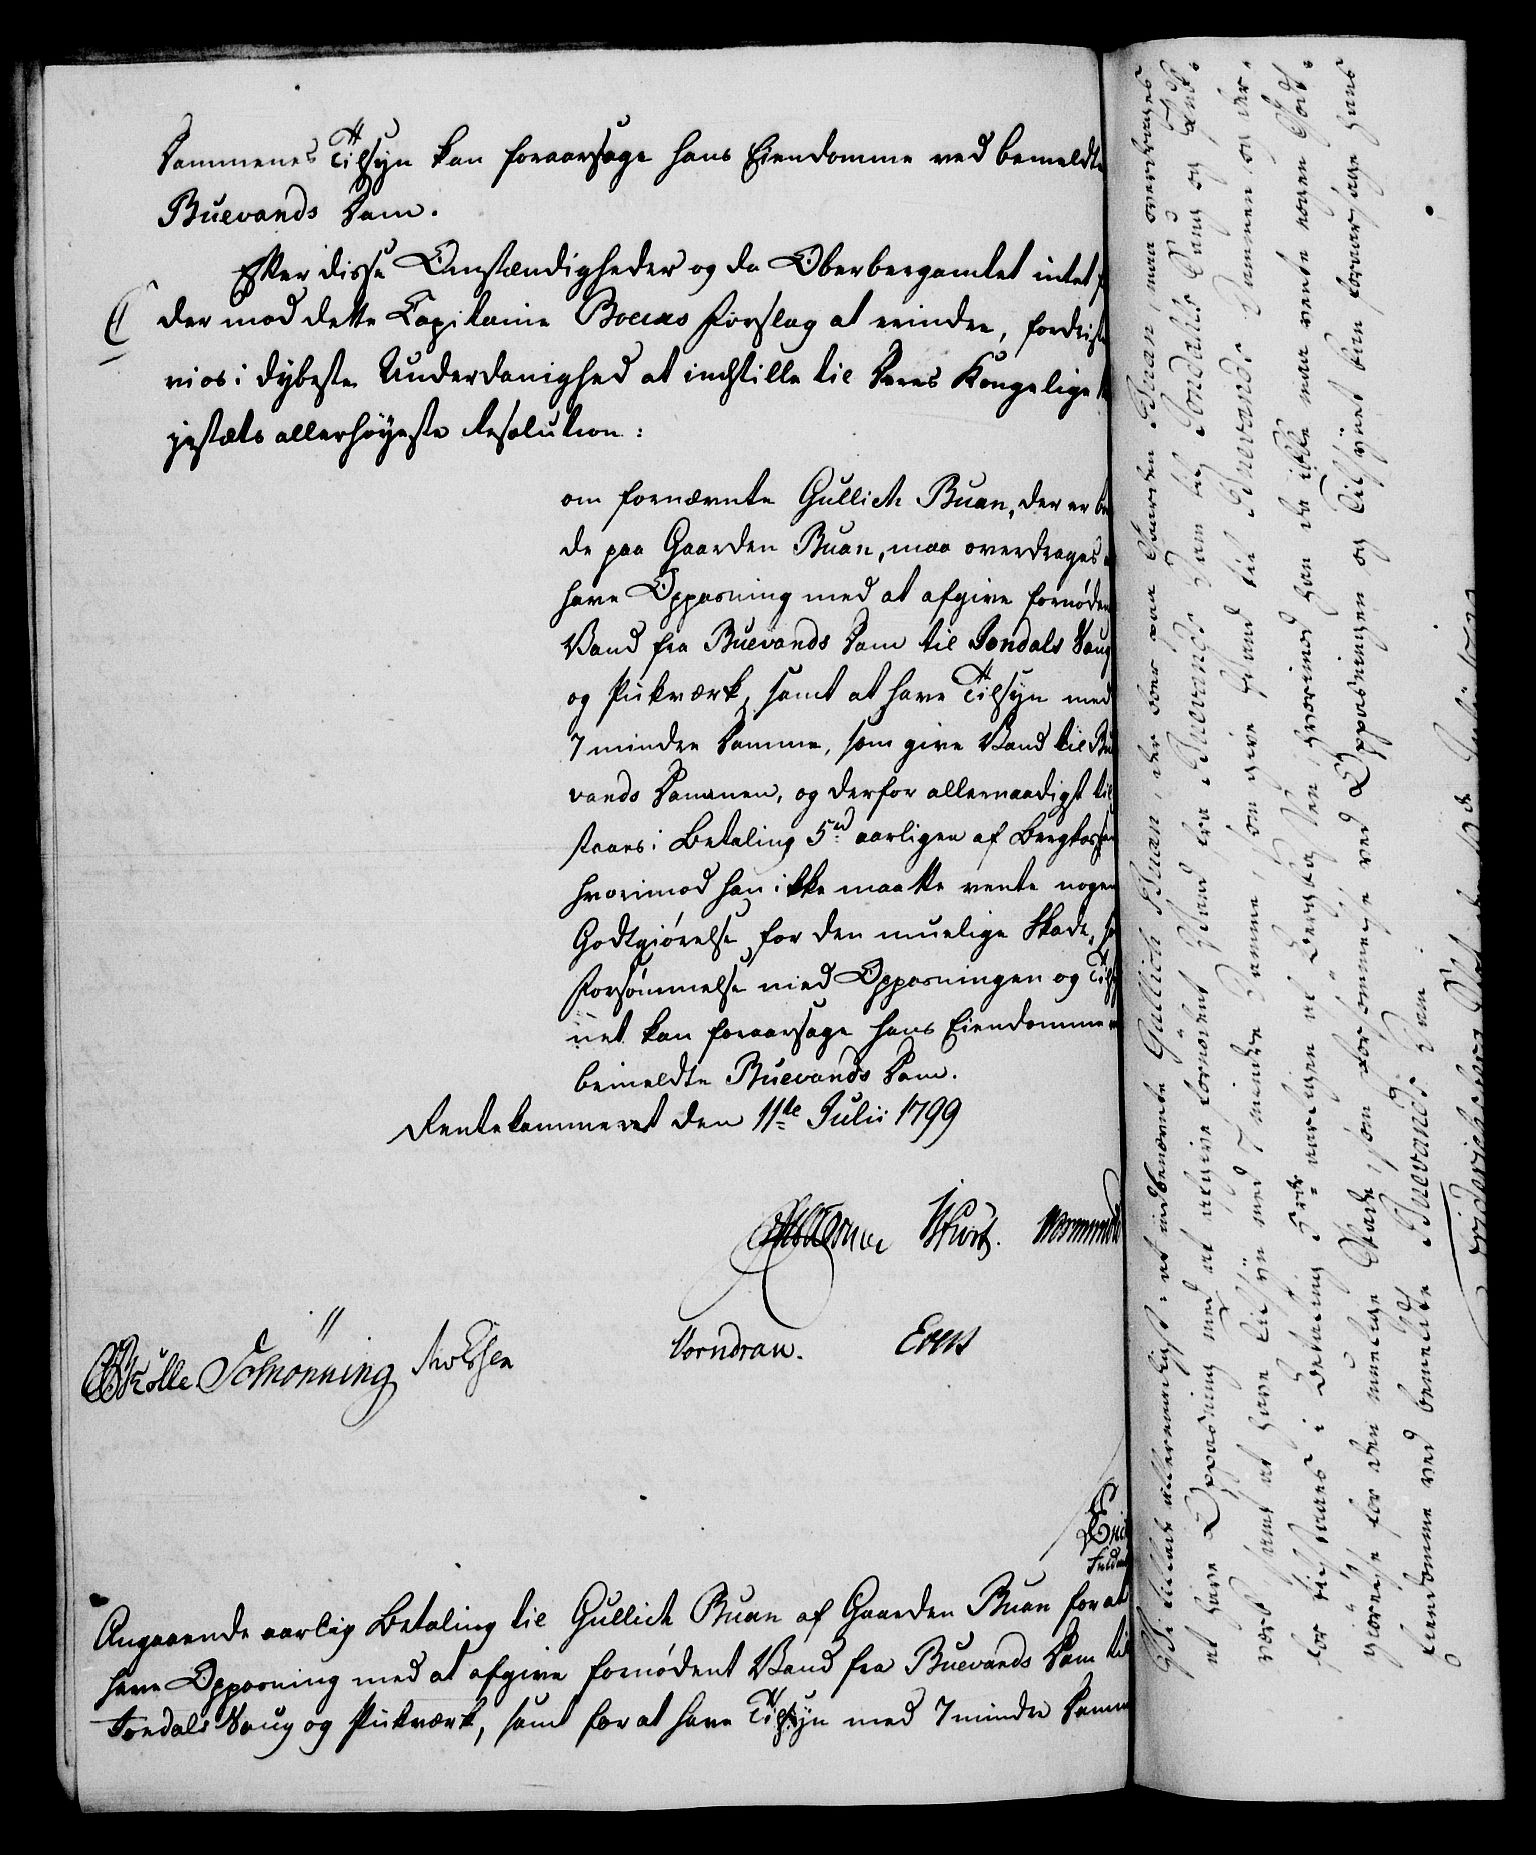 Dammenes Tilsyn kan foraarsage hans Eiendomme ved bemeldte
Buevands Dam.
Efter disse Omstændigheder og da Oberbergamtet intet
der mod dette Capitaine Forslag at erindre, fordriste
vi os i dybeste Underdanighed at indstille til Deres Kongelige
jestæts allerhöyeste Resolution:
om fornævnte Gullich Buan, der er bo
de paa Gaarden Buan, maa overdrages
have Oppasning med at afgive fornöden
Vand fra Buevands Dam til Jondals Saug
og Pukværk, samt at have Tilsyn med
7 mindre Damme, som give Vand til Bue
vands Dammen, og derfor allernaadigst til
staaes i Betaling 5 rd aarligen af Bergkassen
hvorimod han ikke maatte vente nogen
Godtgiörelse for den muelige Skade,
Forsömmelse med Oppasningen og Tilsy
net kan foraarsage hans Eiendomme
bemeldte Buevands Dam.
Rentekammeret den 11te Julii 1799
Wormskiold
Schönning
Vorndran. Evers
Angaaende aarlig Betaling til Gullich Buan af Gaarden Buan for at
have Oppasning med at afgive fornödent Vand fra Buevands Dam til
Jondals Saug og Pukværk, samt for at have Tilsyn med 7 mindre Damm
Vi tillade allernaadigst, at indbenævnte Gullich Buan, der boer paa Gaarden Buan, maa overdrages
at have Oppasning med at afgive fornödent Vand fra Buevands Dam til Jondahls Saug og Puk-
værk, samt at have Tilsyn med 7 mindre Damme, som give Vand til Buevands Dammen, og der-
for tilstaaes i Betaling 5 rdr aarligen af Bergkassen, hvorimod han da ikke maa vente nogen Godt-
giörelse for den muelige Skade, som Forsömmelse ved Oppasningen og Tilsynet kan foraarsage hans
Eiendomme ved bemeldte Buevands Dam.